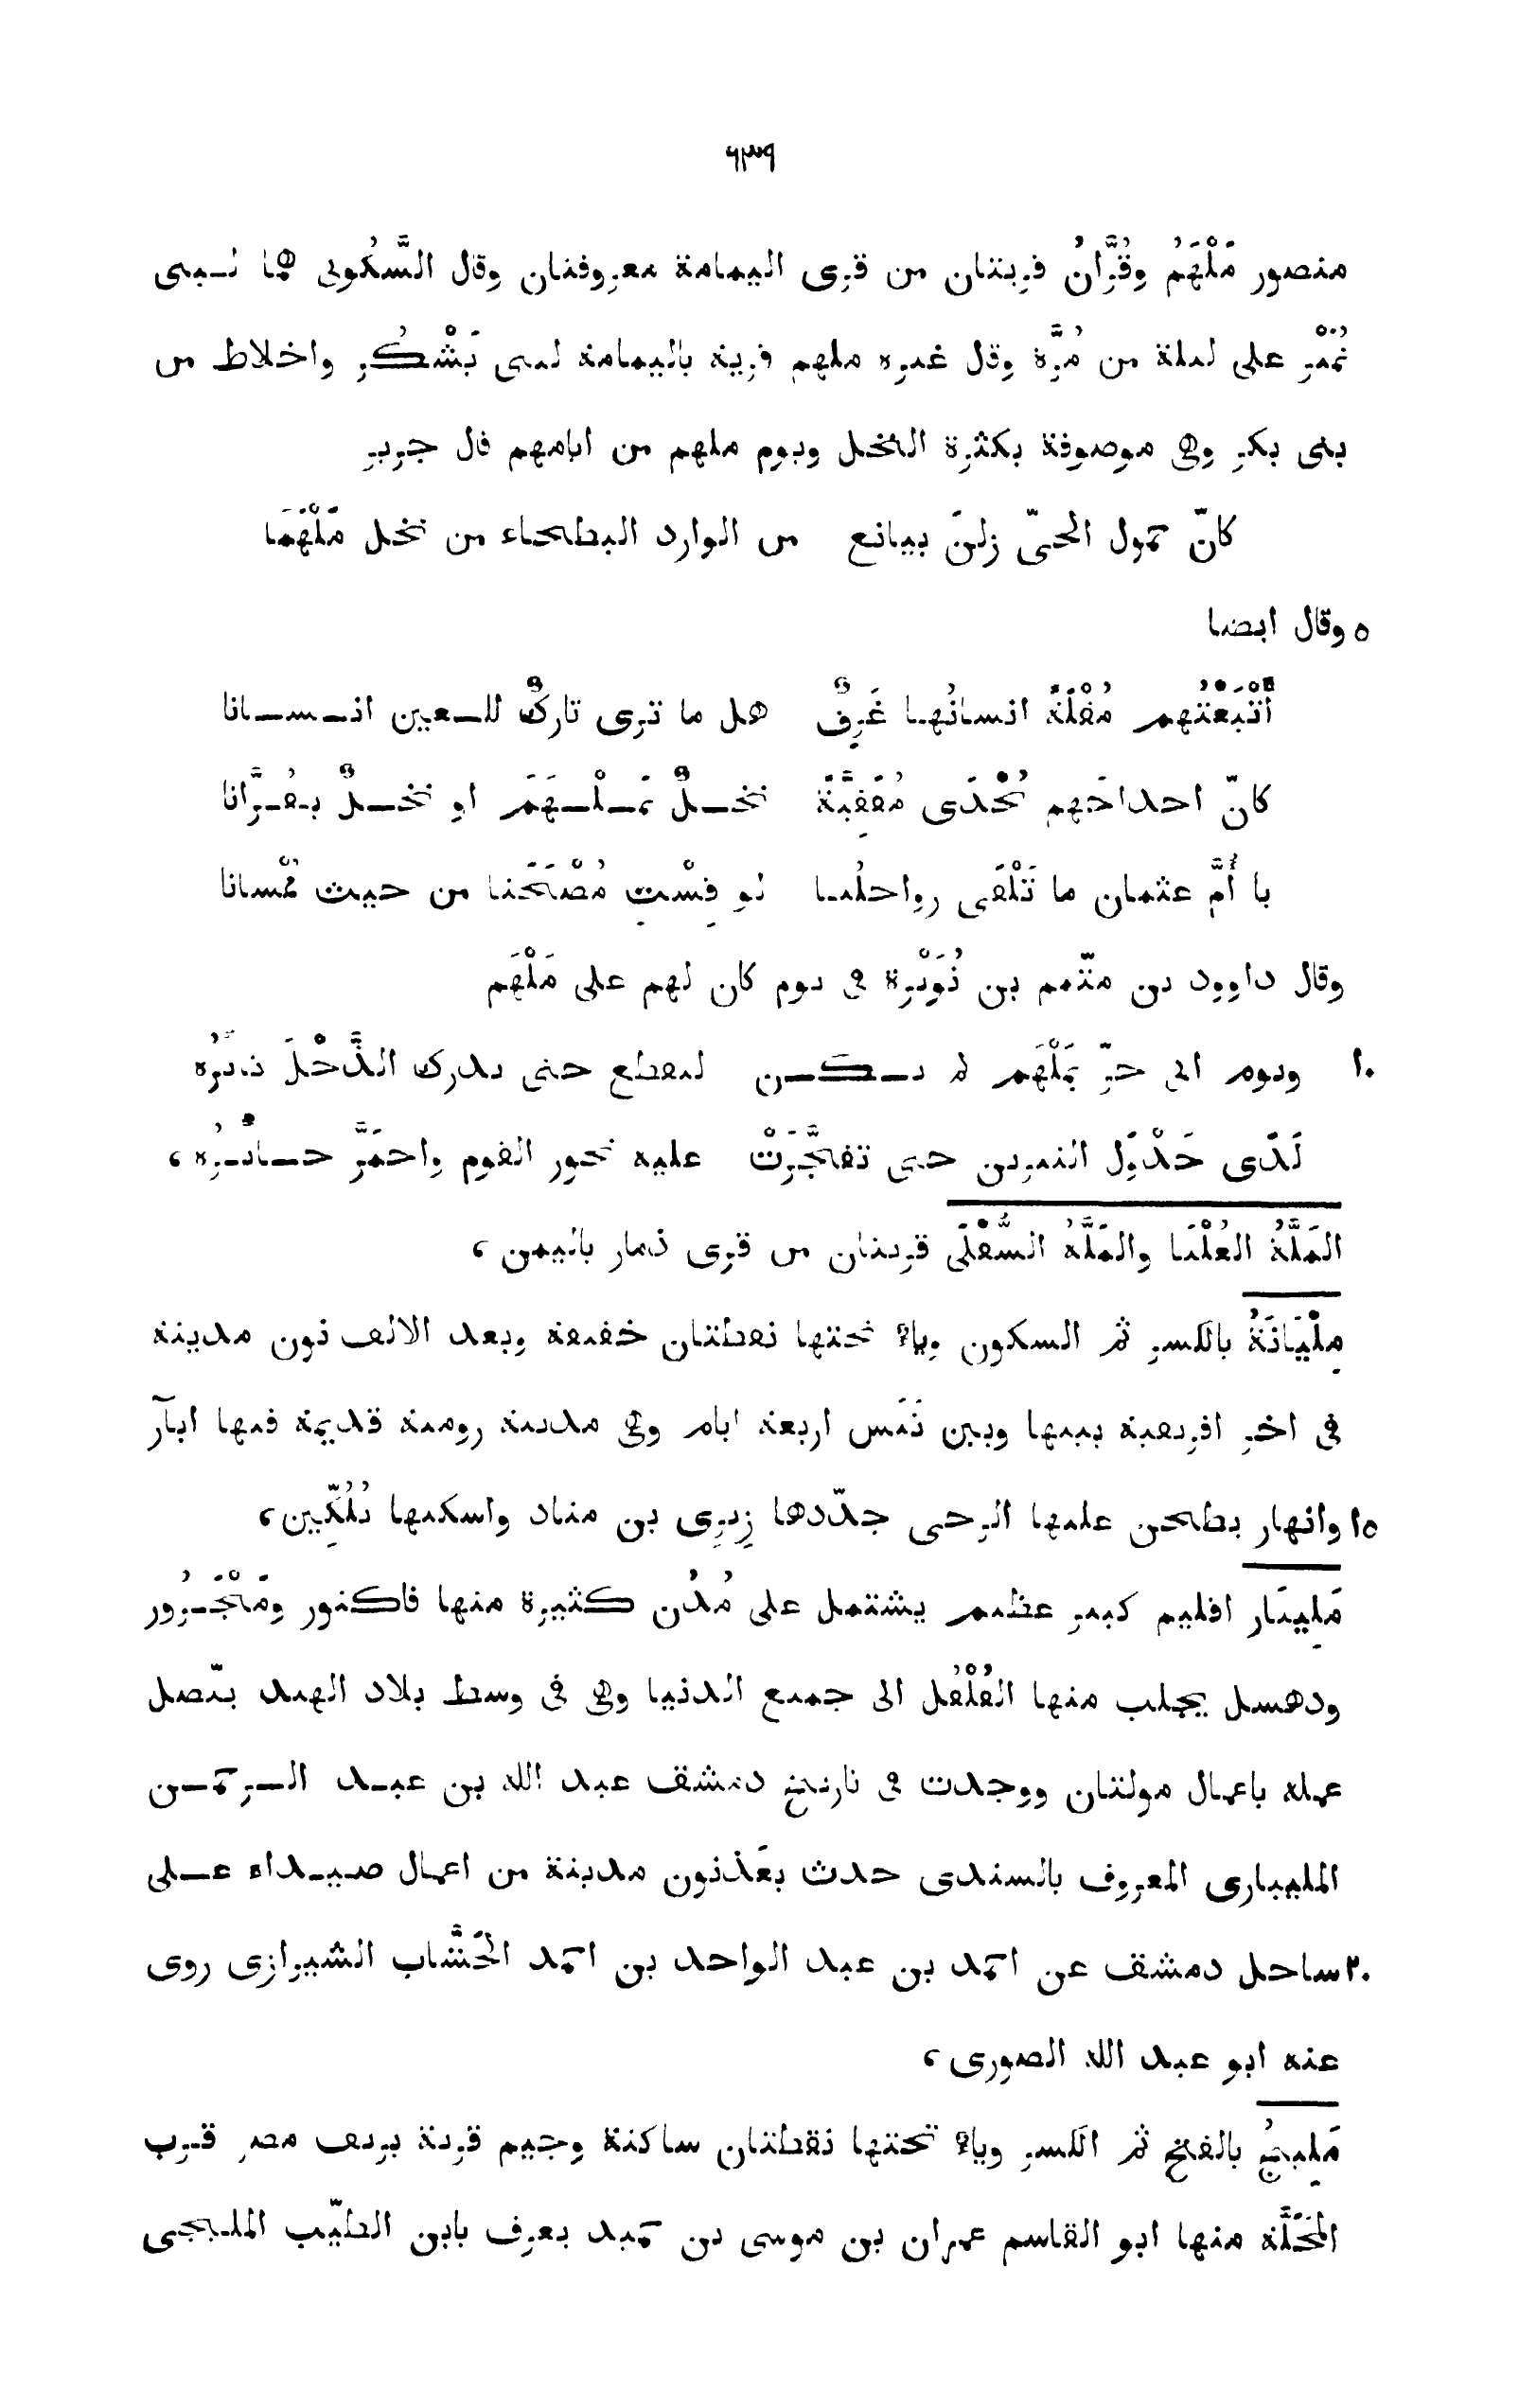 ٦٣٩
منصور مَلْهَمُ وقُرَّانُ قريتان من قرى اليمامة معروفتان وقال السَّكُونى هما لبنى
نُمَيْر على ليلة من مُرَّة وقال غيره ملهم قرية باليمامة لبنى يَشْكُر واخلاط من
بنى بكر وهى موصوفة بكثرة النخل ويوم ملهم من ايامهم قال جرير
كانّ حمول الحىّ زلنَ بيانع من الوارد البطحاء من نخل مَلْهَمَا
٥ وقال ايضا
أَتْبَعْتُهم مُقْلَةً انسانُها غَرِقٌ هل ما ترى تاركٌ للعين انسانا
كانّ احداجَهم تُحْدَى مُقَفِّيَةً نخلٌ بمَلْهَمَ او نخلٌ بقُرَّانا
يا أُمَّ عثمان ما تَلْقَى رواحلُنا لو قِسْتِ مُصْبَحَنا من حيث مُمْسانا
وقال داوود بن متّمم بن نُوَيْرة فى يوم كان لهم على مَلْهَم
١٠ ويوم الى حرّ بمَلْهَم لم يكن ليقطع حتى يدرك الذَّحْلَ ثائرُه
لَدَى جَدْوَل النيرين حتى تفجَّرَتْ عليه نحور القوم واحمَرَّ حائرُه ،
المَلَّةُ العُلْيَا والمَلَّةُ السُّفْلَى قريتان من قرى ذمار باليمن ،
مِلْيَانَةُ بالكسر ثم السكون وياء تحتها نقطتان خفيفة وبعد الالف نون مدينة
فى اخر افريقية بينها وبين تَنَس اربعة ايام وهى مدينة رومية قديمة فيها ابآر
١٥ وانهار يطحن عليها الرحى جدّدها زيرِى بن مناد واسكنها بُلُكِّين ،
مَلِيبَار اقليم كبير عظيم يشتمل على مُدُن كثيرة منها فاكنور ومَنْجَرُور
ودهسل يجلب منها الفُلْفُل الى جميع الدنيا وهى فى وسط بلاد الهند يتّصل
عمله باعمال مولتان ووجدت فى تاريخ دمشق عبد الله بن عبد الرحمن
المليبارى المعروف بالسندى حدث بعَذنون مدينة من اعمال صيداء على
٢٠ ساحل دمشق عن احمد بن عبد الواحد بن احمد الخَشَّاب الشيرازى روى
عنه ابو عبد الله الصورى ،
مَلِيجُ بالفتح ثم الكسر وياء تحتها نقطتان ساكنة وجيم قرية بريف مصر قرب
المَحَلَّة منها ابو القاسم عمران بن موسى بن حميد يعرف بابن الطيّب المليجى